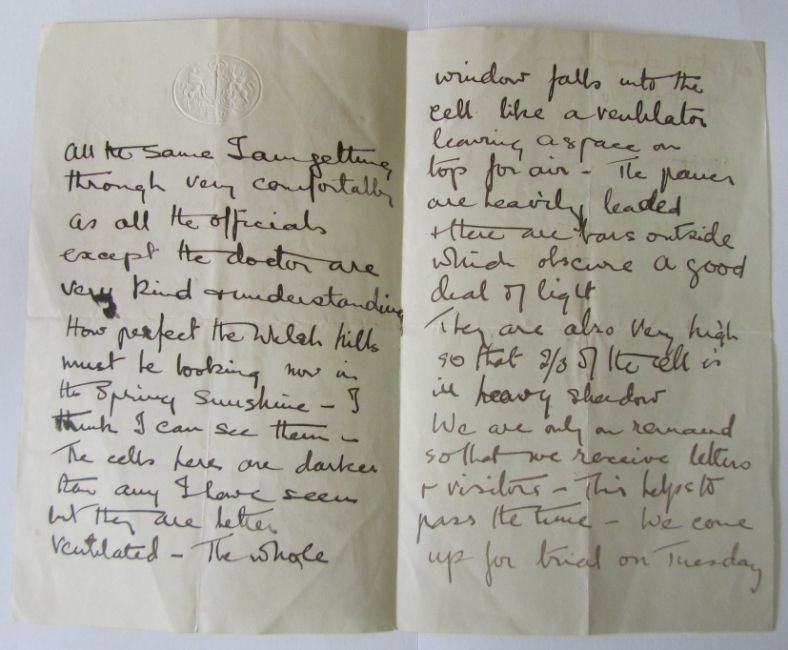 all the same I am getting
through very comfortably
as all the officials
except the doctor are
very kind & understanding
How perfect the Welsh hills
must be looking now in
the Spring Sunshine - I
think I can see them -
The cells here are darker
than any I have seen
but they are better
ventilated - The whole
window falls into the
cell like a ventilator
leaving a space on
top for air - The panes
are heavily leaded
& there are bars outside
which obscure a good
deal of light
They are also very high
so that 2/3 of the cell is
in heavy shadow
We are only on remand
so that we receive letters
& visitors - This helps to
pass the time - We come
up for trial on Tuesday